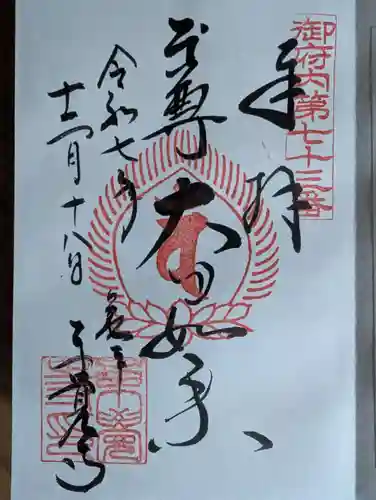 御府内第七十三番
奉拝
本尊 大日如来
令和七年
十二月十八日
亀戸
東覚寺